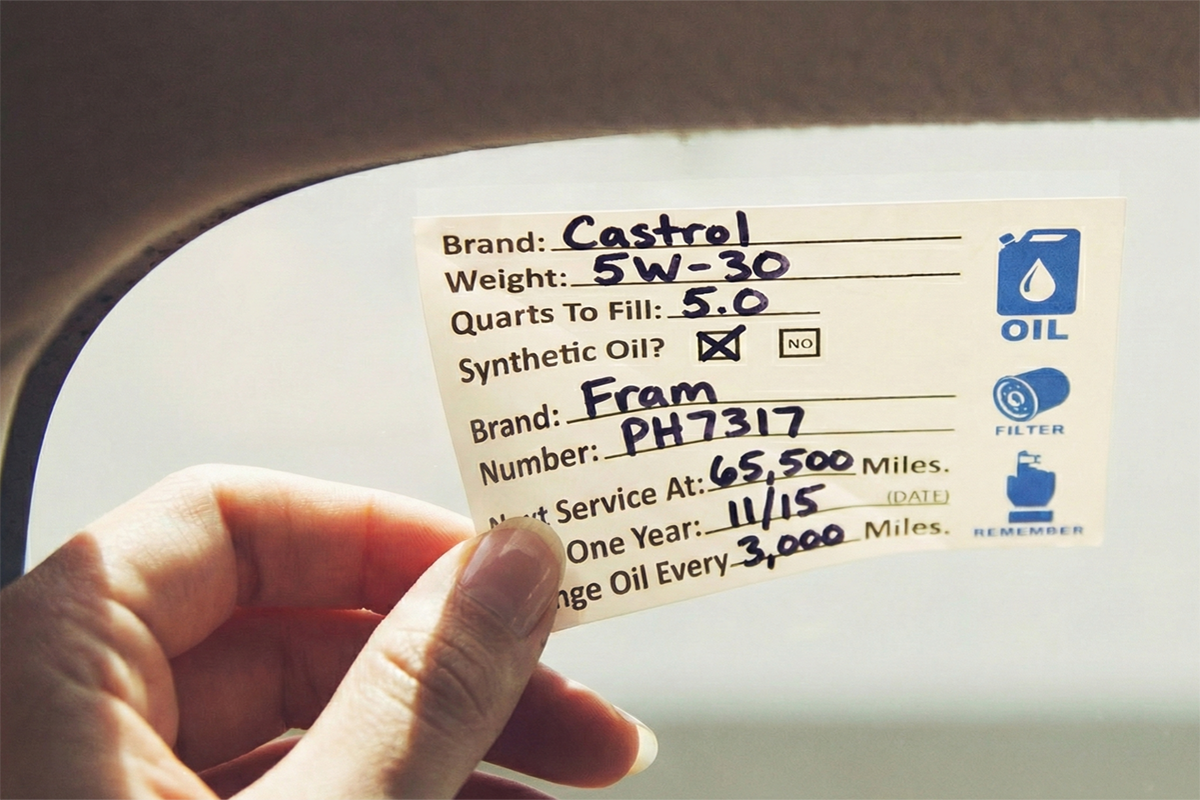 Brand: Castrol
Weight: 5W-30
Quarts To Fill: 5.0
Synthetic Oil? NO
Brand: Fram
Number: PH7317
Service At: 65,500 Miles.
One Year: 11/15 (DATE)
Oil Every 3,000 Miles.
OIL
FILTER
REMEMBER